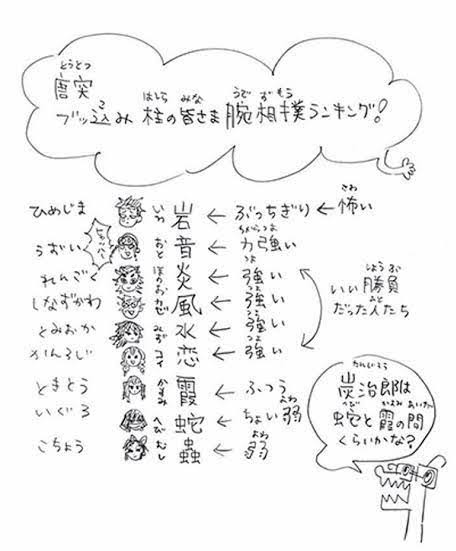 とうとつ
唐突
ブッ込み 柱の皆さま 腕相撲ランキング!
こ はしら みな うで ずもう
ひめじま いわ 岩 ← ぶっちぎり ← 怖い
さわ
うずい おと 音 ← 力強い
ちからづよ
れんごく ほのお 炎 ← 強い
つよ
しなずがわ かぜ 風 ← 強い
つよ
とみおか みず 水 ← 強い
つよ
かんろじ コイ 恋 ← 強い
つよ
いい勝負
しょうぶ
だった人たち
ひと
ときとう かすみ 霞 ← ふつう
いぐろ へび 蛇 ← ちょい弱
よわ
こちょう むし 蟲 ← 弱
よわ
たんじろう
炭治郎は
へび かすみ あいだ
蛇と霞の間
くらいかな?